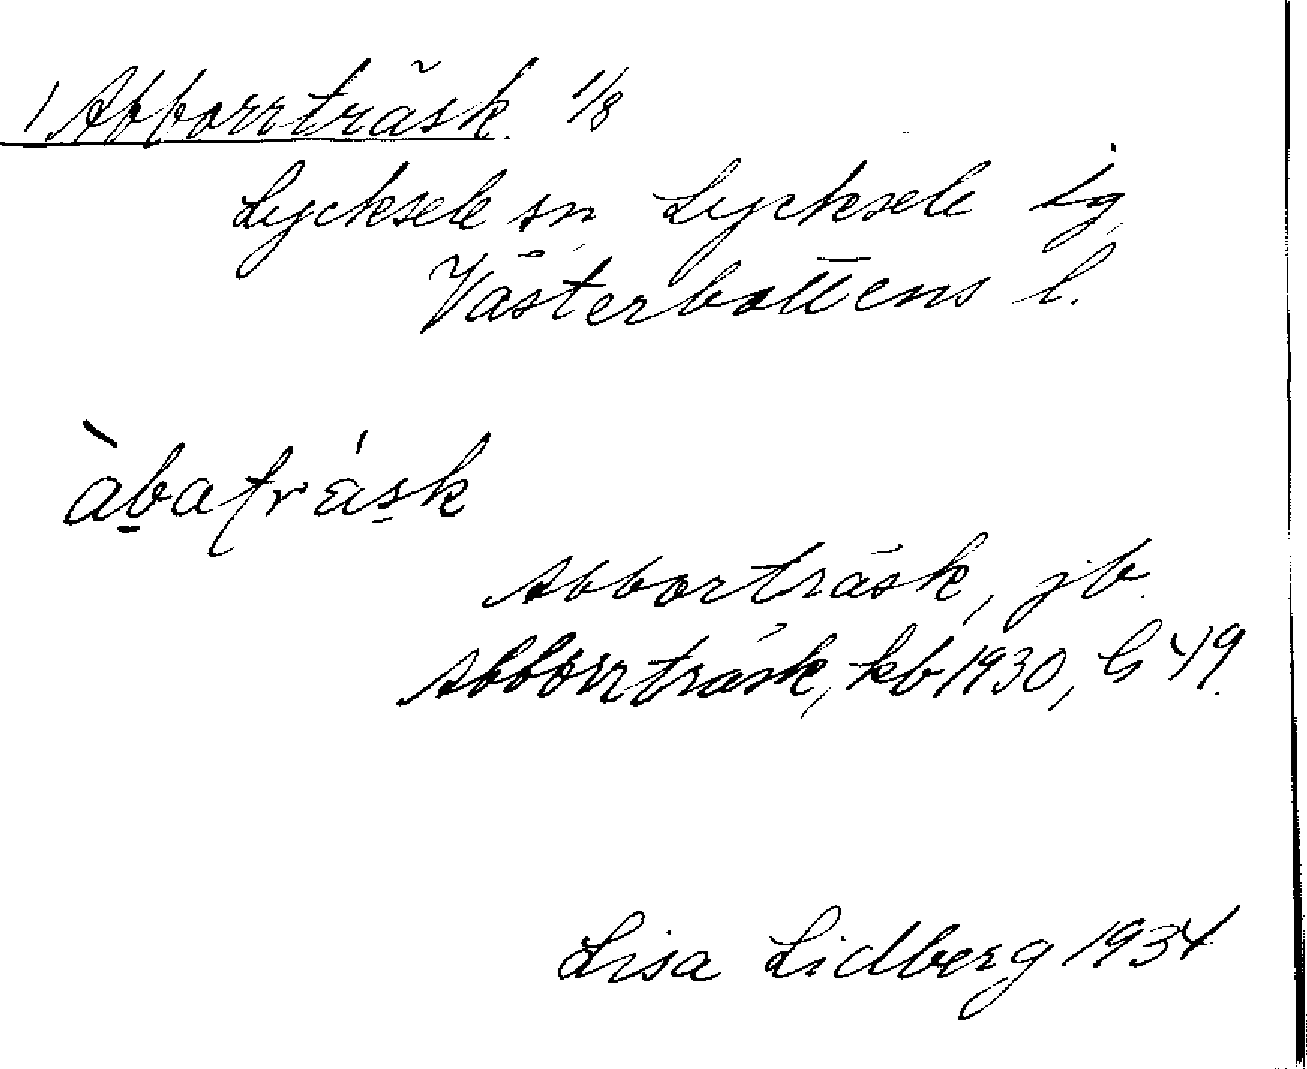 1 Abborrträsk. 1/8
Lycksele sn Lycksele lg
Västerbottens l.
àbatrá̈sk
Abborträsk, jb.
Abborrträsk, kb 1930, G 49.
Lisa Lidberg 1934